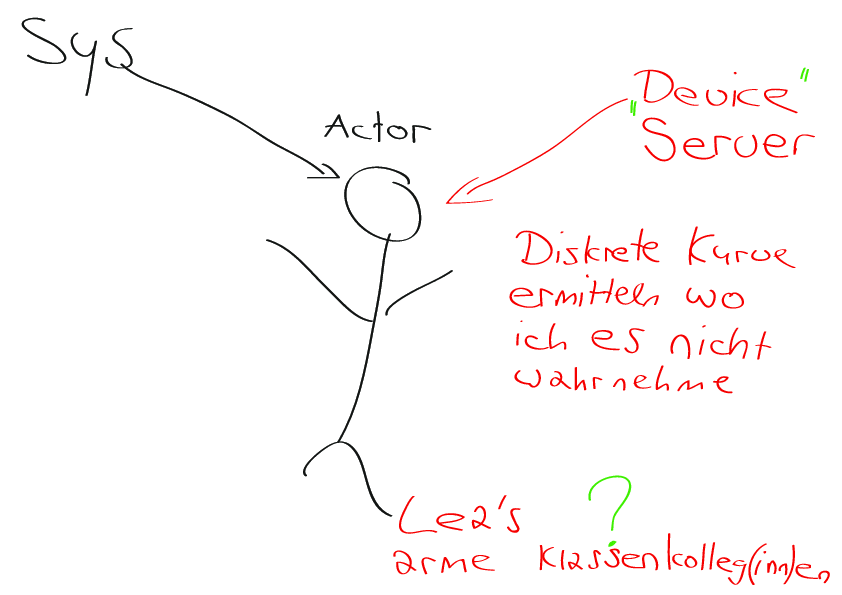 Sys
Actor
Device"
"Server
Diskrete Kurve
ermitteln wo
ich es nicht
wahrnehme
Lea's ?
arme Klassenkolleg(inn)en